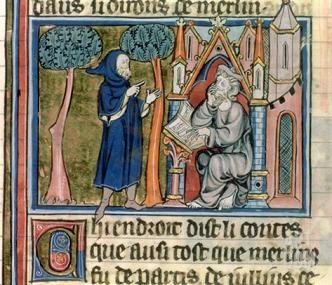 dans li dirons ce merlin
Chi endroit dist li contes
que ausi tost que merlins
fu departis de iulius ce